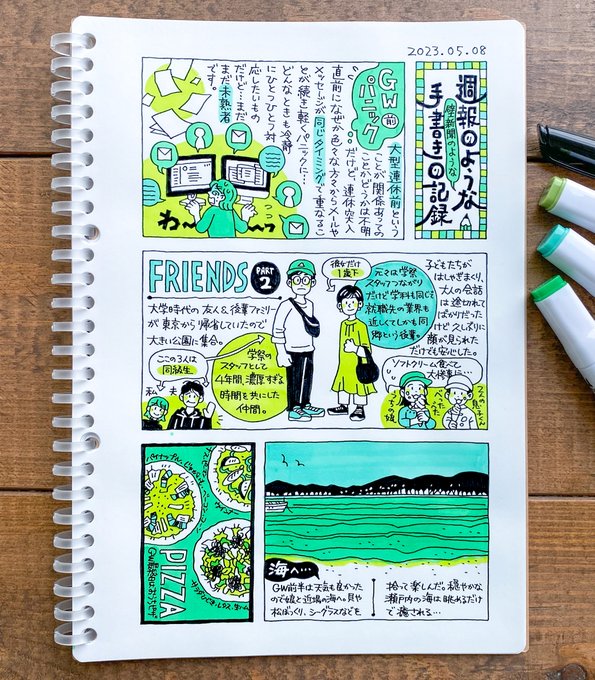 2023.05.08
週報のような
壁新聞のような
手書きの記録
GW前
パニック
大型連休前という
ことが関係あっての
ことかどうかは不明
だけど、連休突入
直前になぜか色々な方々からメールや
メッセージが同じタイミングで重なるこ
とが続き軽くパニックに…
どんなときも冷静
にひとつひとつ対
応したいもの
だけど…まだ
まだ未熟者
です。
わ〜〜〜っ
FRIENDS PART 2
大学時代の友人&後輩ファミリー
が東京から帰省していたので
大きい公園に集合。
ここの3人は
同級生
私
夫
学祭の
スタッフとして
4年間、濃厚すぎる
時間を共にした
仲間。
彼女だけ
1歳下
元々は学祭
スタッフつながり
だけど学科も同じで
就職先の業界も
近しくてしかも同
郷という後輩。
子どもたちが
はしゃぎまくり、
大人の会話
は途切れて
ばかりだった
けど久しぶりに
顔が見られた
だけでも安心した。
ソフトクリーム食べて
大惨事に…
うちの娘
べったべた
2人の息子くん
PIZZA
海へ…
GW前半は天気も良かった
ので娘と近場の海へ。貝や
松ぼっくり、シーグラスなどを
拾って楽しんだ。穏やかな
瀬戸内の海は眺めるだけ
で癒される…